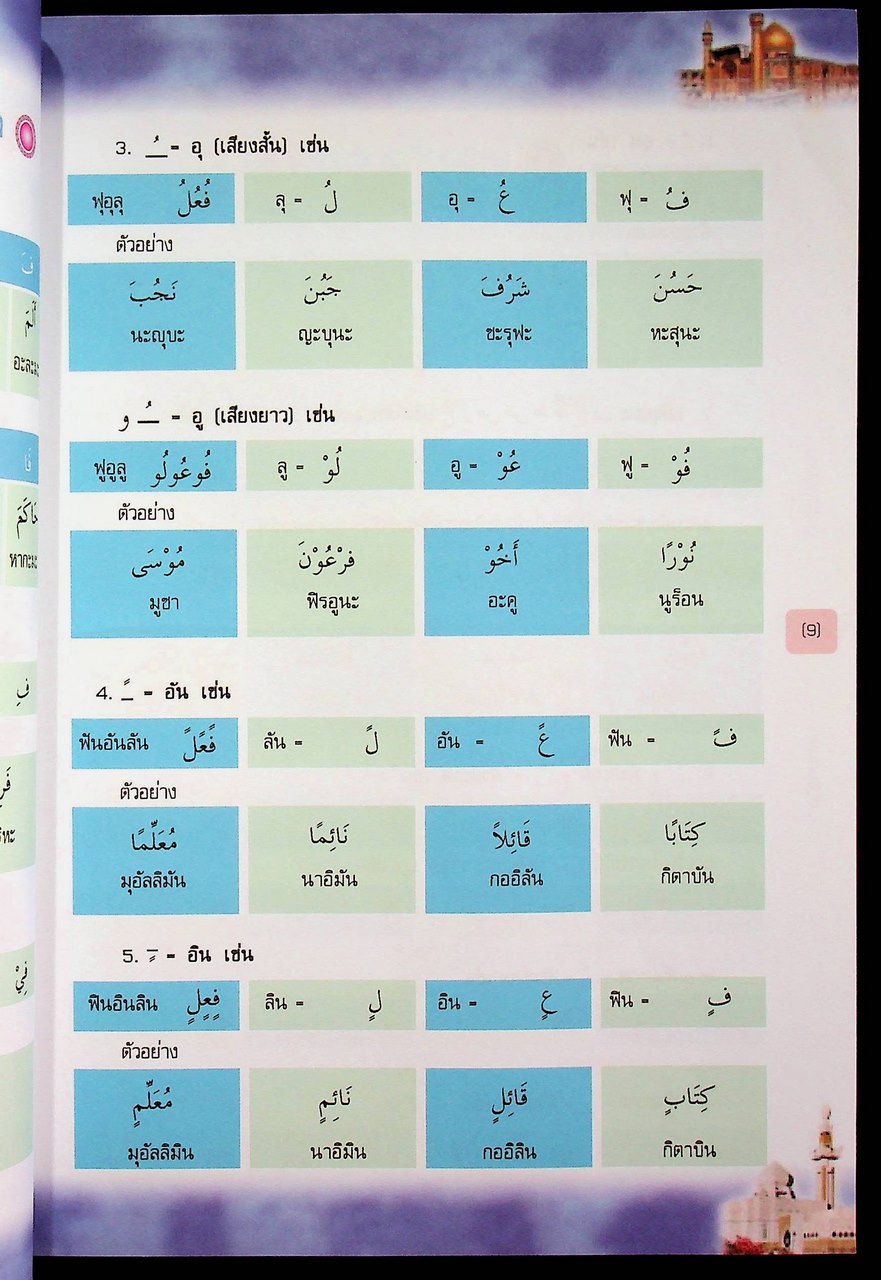 3. ـُ = อุ (เสียงสั้น) เช่น
ฟุอุลุ فُعُلُ ลุ = لُ อุ = عُ ฟุ = فُ
ตัวอย่าง
نَجُبَ جَبُنَ شَرُفَ حَسُنَ
นะญุบะ ญะบุนะ ชะรุฟะ หะสุนะ
ـُ و = อู (เสียงยาว) เช่น
ฟูอูลู فُوعُولُو ลู = لُوْ อู = عُوْ ฟู = فُوْ
ตัวอย่าง
مُوْسَى فِرْعُوْنَ أَخُوْ نُوْرًا
มูซา ฟิรอูนะ อะคู นูร็อน
(9)
4. ـً = อัน เช่น
ฟันอันลัน فًعًلً ลัน = لً อัน = عً ฟัน = فً
ตัวอย่าง
مُعَلِّمًا نَائِمًا قَائِلاً كِتَابًا
มุอัลลิมัน นาอิมัน กออิลัน กิตาบัน
5. ـٍ = อิน เช่น
ฟินอินลิน فٍعٍلٍ ลิน = لٍ อิน = عٍ ฟิน = فٍ
ตัวอย่าง
مُعَلِّمٍ نَائِمٍ قَائِلٍ كِتَابٍ
มุอัลลิมิน นาอิมิน กออิลิน กิตาบิน